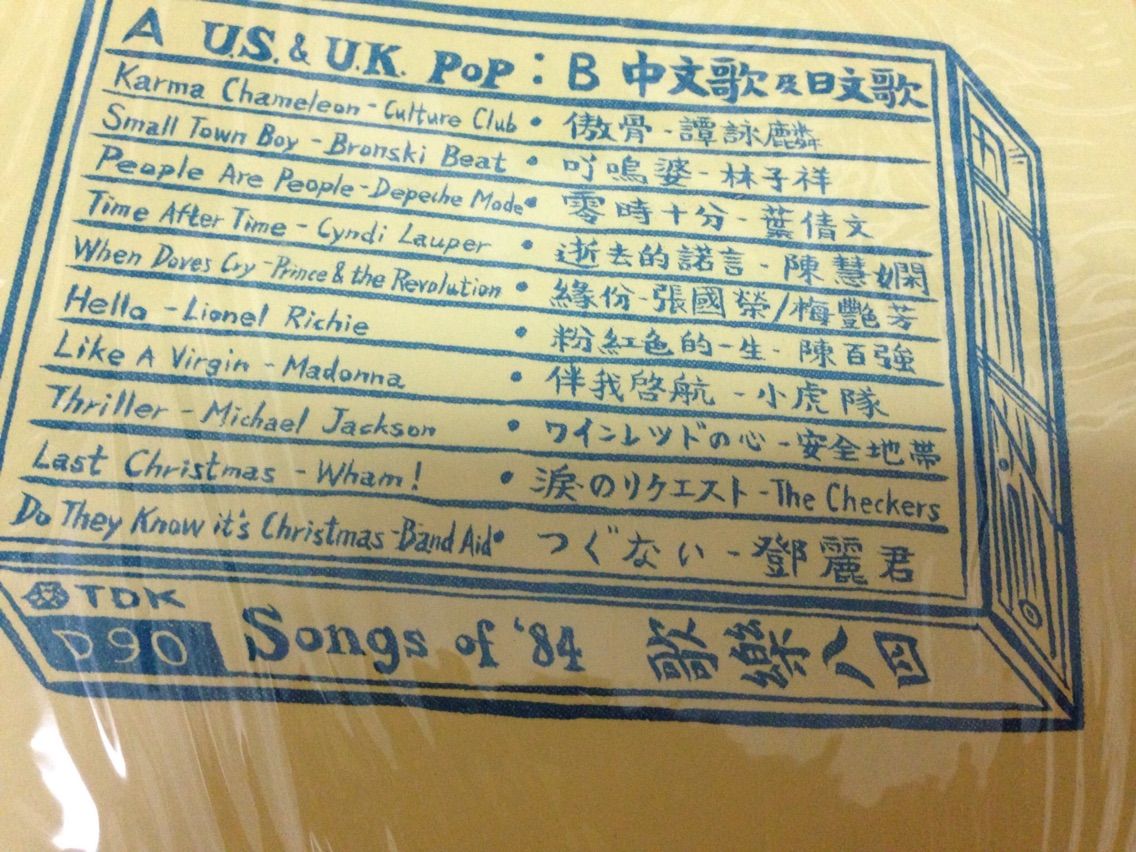 A U.S. & U.K. POP : B 中文歌及日文歌
Karma Chameleon - Culture Club • 傲骨 - 譚詠麟
Small Town Boy - Bronski Beat • 吖嗚婆 - 林子祥
People Are People - Depeche Mode • 零時十分 - 葉倩文
Time After Time - Cyndi Lauper • 逝去的諾言 - 陳慧嫻
When Doves Cry - Prince & the Revolution • 緣份 - 張國榮/梅艷芳
Hello - Lionel Richie • 粉紅色的一生 - 陳百強
Like A Virgin - Madonna • 伴我啓航 - 小虎隊
Thriller - Michael Jackson • ワインレッドの心 - 安全地帯
Last Christmas - Wham! • 涙のリクエスト - The Checkers
Do They Know it's Christmas - Band Aid • つぐない - 鄧麗君
TDK
D90 Songs of '84 歌樂八四